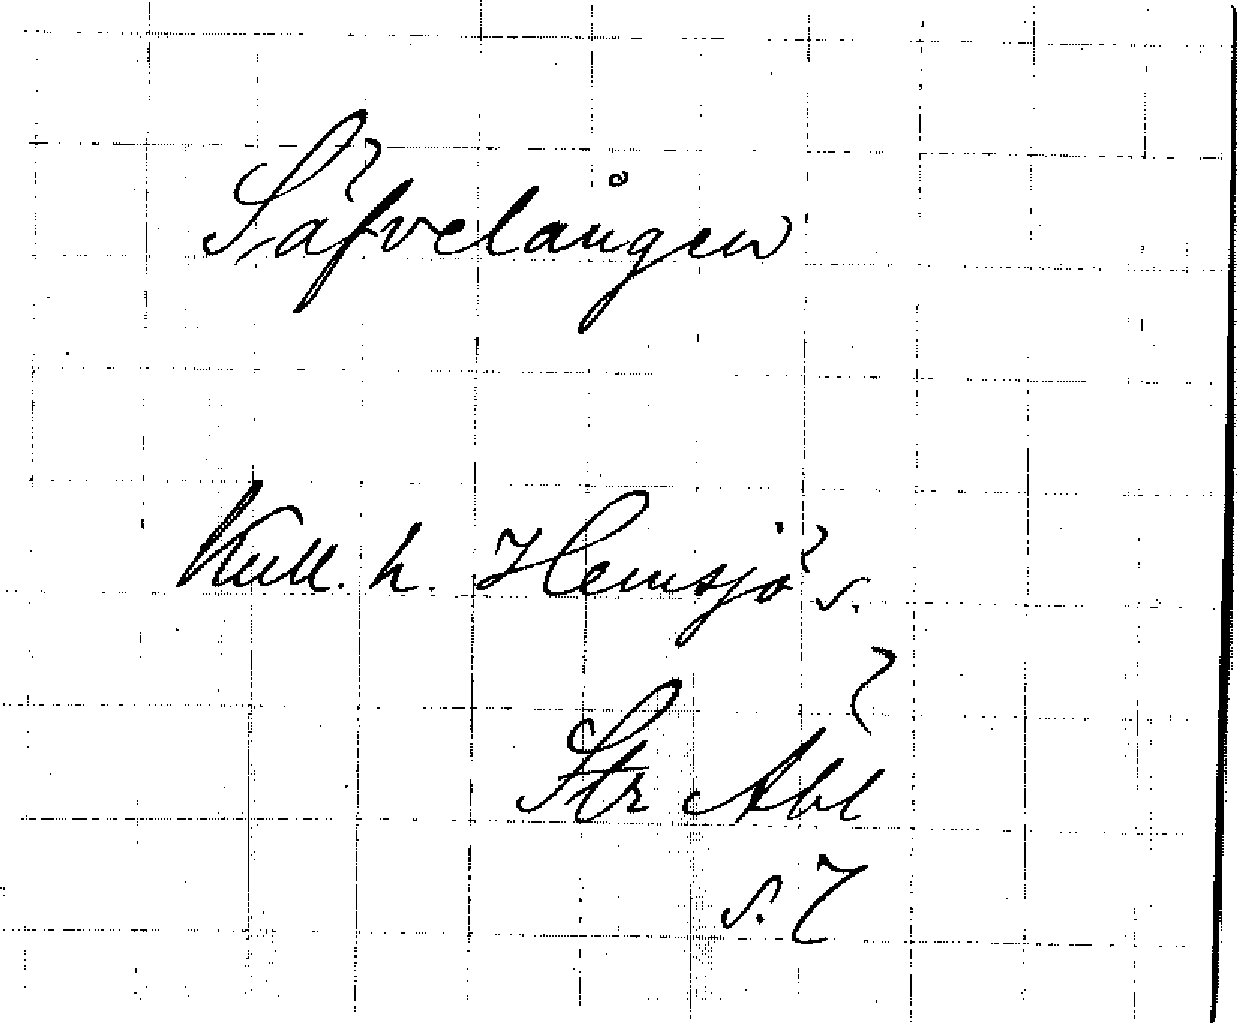 Säfvelången
Kull. h. Hemsjö s.
Str Abl
s. 7